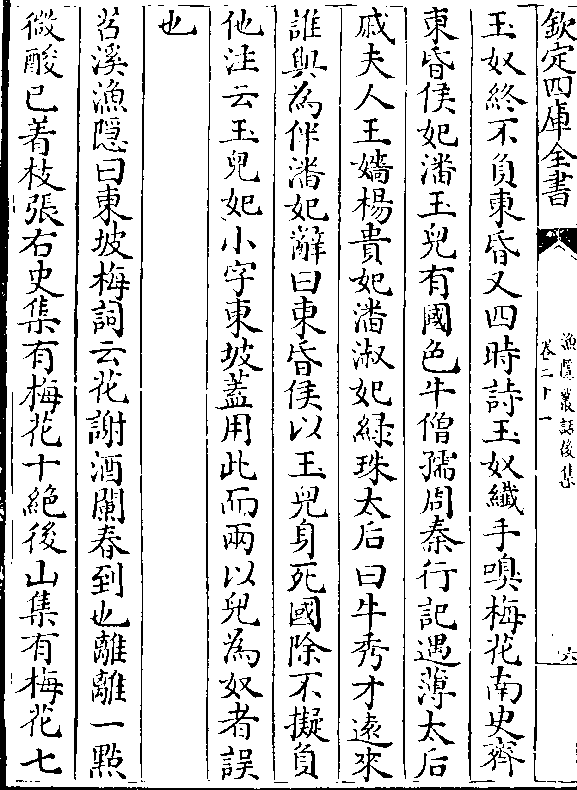 欽定四庫全書
漁隱叢話後集
卷二十一
六
玉奴終不負東昏又四時詩玉奴纎手嗅梅花南史齊
東昏侯妃潘玉兒有國色牛僧孺周秦行記遇薄太后
戚夫人王嬙楊貴妃潘淑妃緑珠太后曰牛秀才遠來
誰與為伴潘妃辭曰東昏侯以玉兒身死國除不擬負
他注云玉兒妃小字東坡蓋用此而兩以兒為奴者誤
也
苕溪漁隱曰東坡梅詞云花謝酒闌春到也離離一點
微酸已着枝張右史集有梅花十絶後山集有梅花七